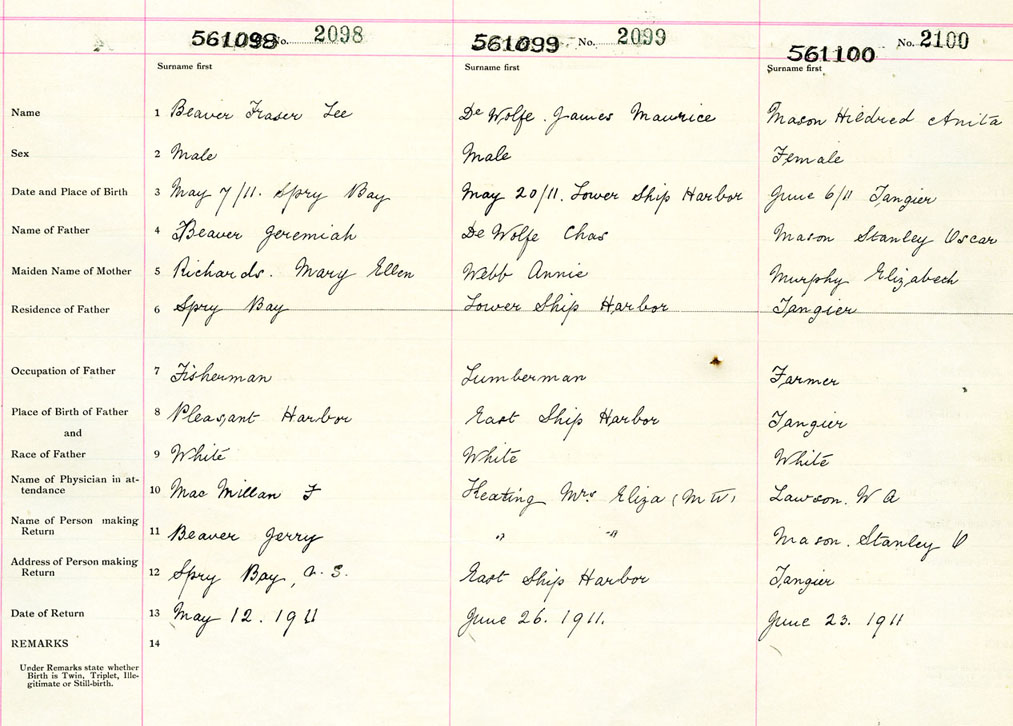 561098 No. 2098 561099 No. 2099 561100 No. 2100
Surname first Surname first Surname first
Name 1 Beaver Fraser Lee De Wolfe. James Maurice Mason Hildred Anita
Sex 2 Male Male Female
Date and Place of Birth 3 May 7/11. Spry Bay May 20/11. Lower Ship Harbor June 6/11 Tangier
Name of Father 4 Beaver Jeremiah De Wolfe Chas Mason Stanley Oscar
Maiden Name of Mother 5 Richards. Mary Ellen Webb Annie Murphy Elizabeth
Residence of Father 6 Spry Bay Lower Ship Harbor Tangier
Occupation of Father 7 Fisherman Lumberman Farmer
Place of Birth of Father 8 Pleasant Harbor East Ship Harbor Tangier
and
Race of Father 9 White White White
Name of Physician in at-
tendance 10 Mac Millan F Keating Mrs Eliza (M W) Lawson. W A
Name of Person making
Return 11 Beaver Jerry " " Mason. Stanley O
Address of Person making
Return 12 Spry Bay, East Ship Harbor Tangier
Date of Return 13 May 12. 1911 June 26. 1911. June 23. 1911
REMARKS 14
Under Remarks state whether
Birth is Twin, Triplet, Ille-
gitimate or Still-birth.